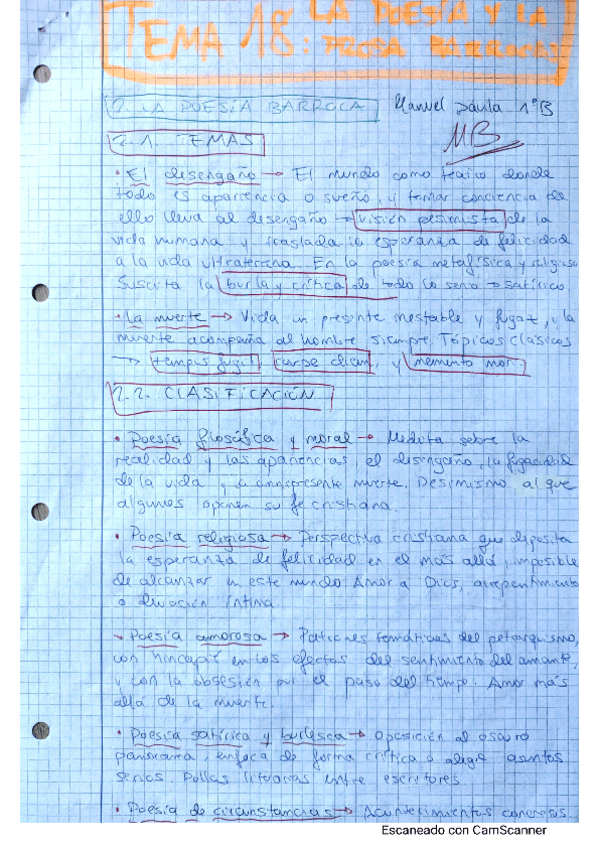 TEMA 18: LA POESÍA Y LA
PROSA BARROCAS
2. LA POESÍA BARROCA Manuel Dávila 1ºB
2.1. TEMAS MB
• El desengaño → El mundo como teatro donde
todo es apariencia o sueño y tomar conciencia de
ello lleva al desengaño → visión pesimista de la
vida humana y traslada la esperanza de felicidad
a la vida ultraterrena. En la poesía metafísica y religiosa
Suscita la burla y crítica de todo lo serio → satírico.
• La muerte → Vida un presente inestable y fugaz, y la
muerte acompaña al hombre siempre. Tópicos clásicos
→ tempus fugit, carpe diem, y memento mori.
2.2. CLASIFICACIÓN
• Poesía filosófica y moral → Medita sobre la
realidad y las apariencias, el desengaño, la fugacidad
de la vida y la omnipresente muerte. Pesimismo al que
algunos oponen su fe cristiana.
• Poesía religiosa → Perspectiva cristiana que deposita
la esperanza de felicidad en el más allá, imposible
de alcanzar en este mundo. Amor a Dios, arrepentimiento
o devoción íntima.
• Poesía amorosa → Patrones temáticos del petrarquismo,
con hincapié en los efectos del sentimiento del amante,
y con la obsesión por el paso del tiempo. Amor más
allá de la muerte.
• Poesía satírica y burlesca → Oposición al oscuro
panorama, enfoca de forma crítica o alegre asuntos
serios. Pullas literarias entre escritores.
• Poesía de circunstancias → Acontecimientos concretos.
Escaneado con CamScanner